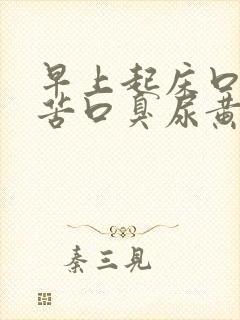 早上起床口
苦口臭尿黄
秦三見